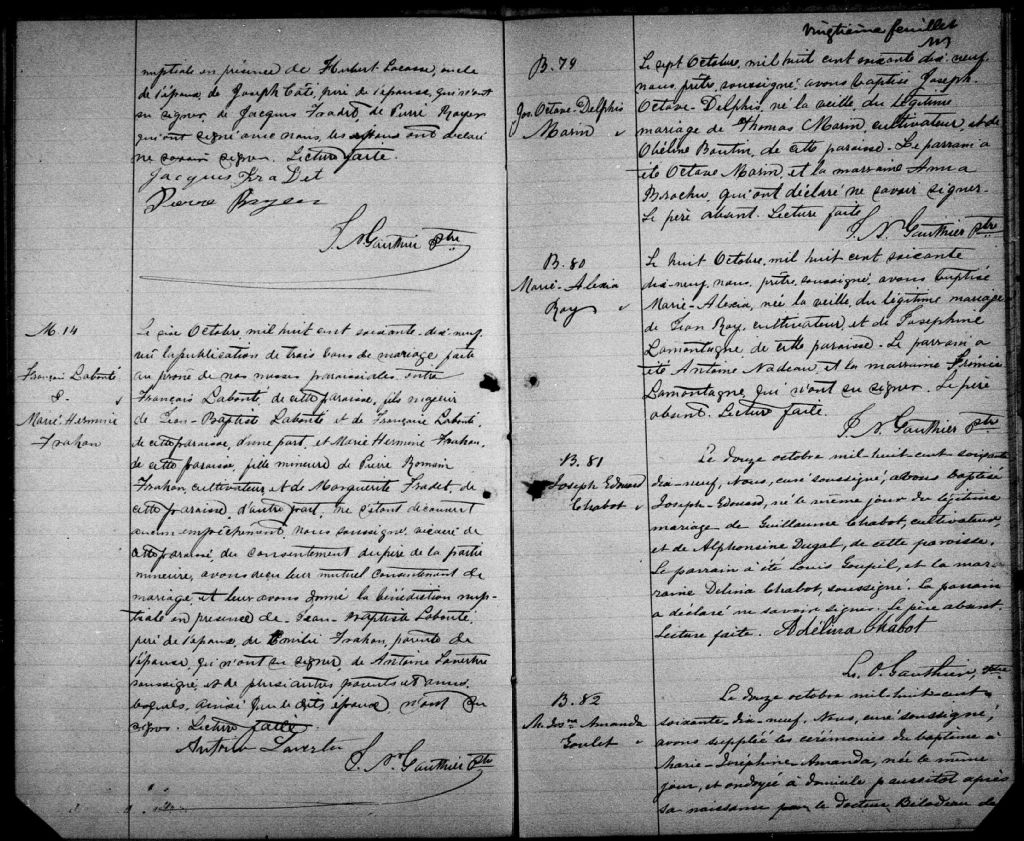 nuptiale en présence de Hubert Lacasse, oncle
de l'époux, de Joseph Côté, père de l'épouse, qui n'ont
su signer, de Jacques Fradet, de Pierre Royer
qui ont signé avec nous, les époux ont déclaré
ne savoir signer. Lecture faite.
Jacques FraDet
Pierre Royer
J. N. Gauthier Ptre
M. 14
François Labonté
&
Marie Hermine
Trahan
Le six Octobre mil huit cent soixante-dix-neuf,
vu la publication de trois bans de mariage faite
au prône de nos messes paroissiales entre
François Labonté, de cette paroisse, fils majeur
de Jean-Baptiste Labonté et de Françoise Labonté,
de cette paroisse, d'une part, et Marie Hermine Trahan,
de cette paroisse, fille mineure de Pierre Romain
Trahan, cultivateur, et de Marguerite Fradet, de
cette paroisse, d'autre part, ne s'étant découvert
aucun empêchement, Nous, soussigné, vicaire de
cette paroisse, du consentement du père de la partie
mineure, avons reçu leur mutuel consentement de
mariage, et leur avons donné la bénédiction nup-
tiale en présence de Jean-Baptiste Labonté,
père de l'époux, de Emilie Trahan, parente de
l'épouse, qui n'ont su signer, de Antoine Lavertu
soussigné, et de plusieurs autres parents et amis,
lesquels, ainsi que les dits époux, n'ont su
signer. Lecture faite
Antoine Lavertu
J. N. Gauthier Ptre
vingtième feuillet
B. 79
Jos. Octave-Delphis
Marin
Le sept Octobre, mil huit cent soixante dix-neuf,
nous, prêtre, soussigné, avons baptisé Joseph-
Octave-Delphis, né la veille, du légitime
mariage de Thomas Marin, cultivateur, et de
Obéline Boutin, de cette paroisse. Le parrain a
été Octave Marin, et la marraine Anna
Brochu, qui ont déclaré ne savoir signer.
Le père absent. Lecture faite
J. N. Gauthier Ptre
B. 80
Marie-Alexia
Roy
Le huit Octobre, mil huit cent soixante
dix-neuf, nous, prêtre, soussigné, avons baptisé
Marie-Alexia, née la veille, du légitime mariage
de Jean Roy, cultivateur, et de Josephine
Lamontagne de cette paroisse. Le parrain a
été Antoine Nadeau, et la marraine
Lamontagne, qui n'ont su signer. Le père
absent. Lecture faite.
J. N. Gauthier Ptr
B. 81
Joseph Edouard
Chabot
Le douze octobre mil huit-cent soixante
dix-neuf, Nous, curé soussigné, avons baptisé
Joseph-Edouard, né le même jour du légitime
mariage de Guillaume Chabot, cultivateur,
et de Alphonsine Dugal, de cette paroisse.
Le parrain a été Louis Goupil, et la mar
raine Delina Chabot, soussigné. Le parrain
a déclaré ne savoir signer. Le père absent.
Lecture faite. Adélina Chabot
L. O. Gauthier, ptre
B. 82
M. Jos.ne Amanda
Goulet
Le douze octobre mil huit-cent
soixante-dix-neuf, Nous, curé soussigné,
avons suppléé les cérémonies du baptême à
Marie-Joséphine Amanda, née le même
jour, et ondoyé à domicile aussitôt après
sa naissance par le docteur Bilodeau de